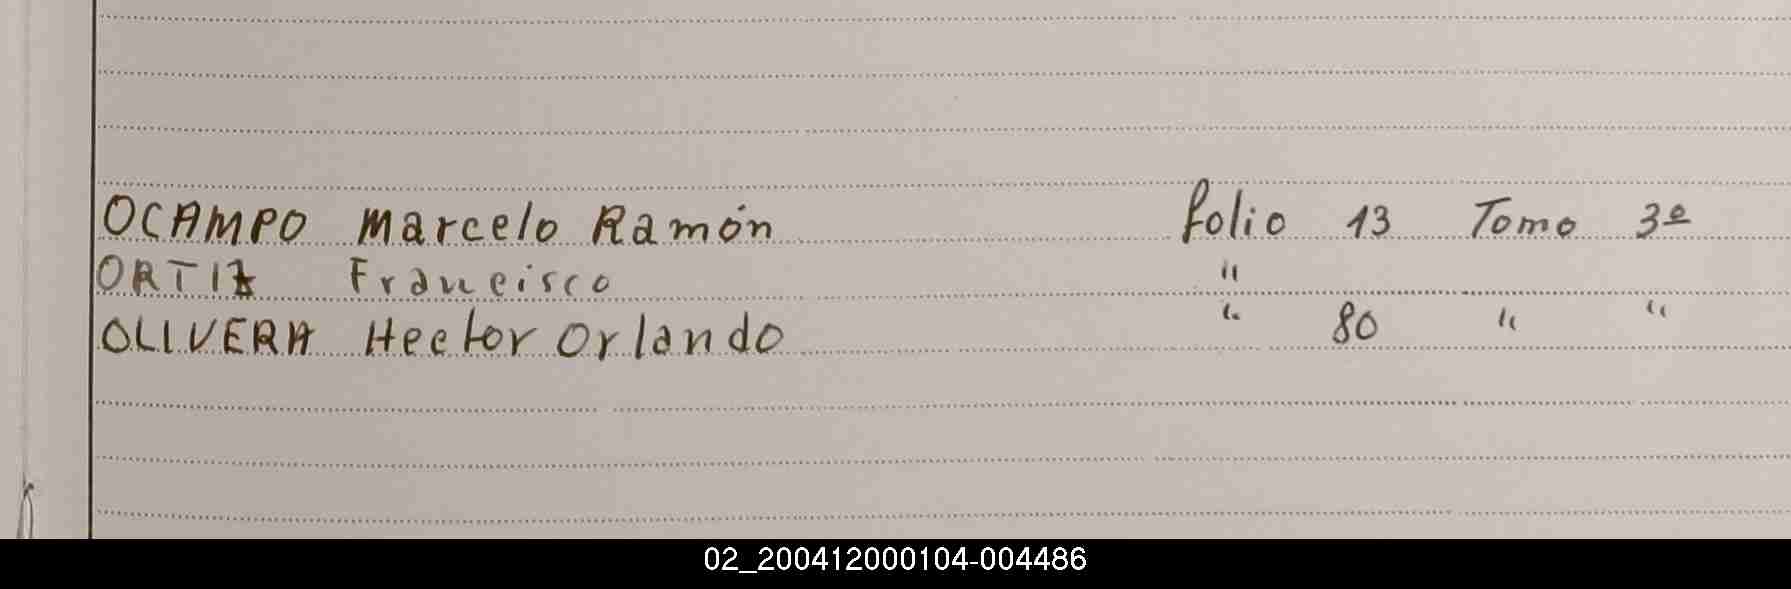 OCAMPO Marcelo Ramón folio 13 Tomo 3º
ORTIZ Francisco "
OLIVERA Hector Orlando " 80 " "
02_200412000104-004486